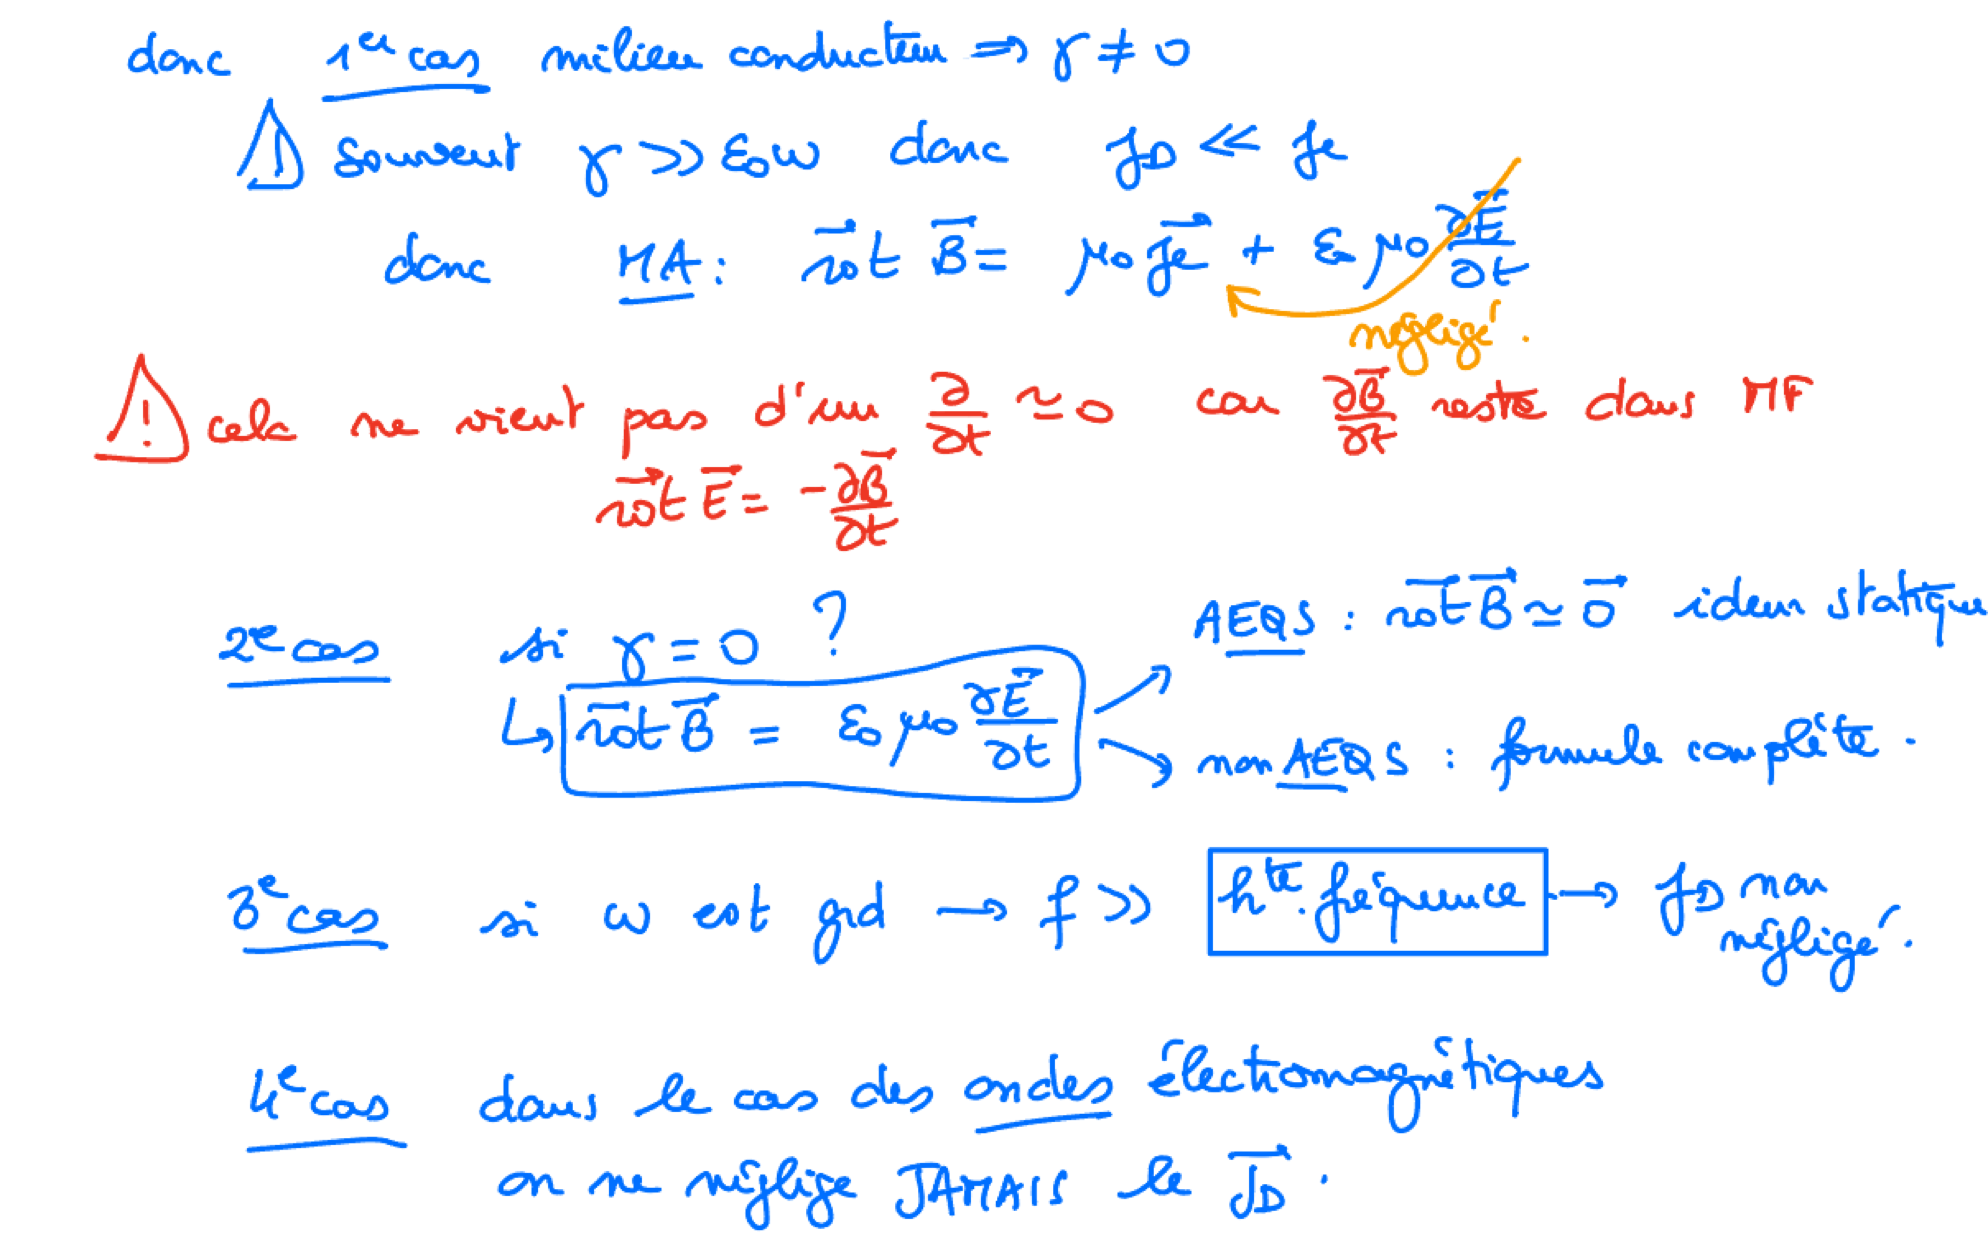 donc 1er cas milieu conducteur ⇒ γ ≠ 0
⚠ souvent γ >> ε₀ω donc j_D << j_e
donc MA : rot⃗ B⃗ = μ₀ j_e⃗ + ε₀ μ₀ ∂E⃗/∂t
négligé.
⚠ cela ne vient pas d'un ∂/∂t ≃ 0 car ∂B⃗/∂t reste dans MF
rot⃗ E⃗ = -∂B⃗/∂t
2e cas si γ = 0 ?
↳ rot⃗ B⃗ = ε₀ μ₀ ∂E⃗/∂t
AEQS : rot⃗ B⃗ ≃ 0⃗ idem statique
non AEQS : formule complète.
3e cas si ω est grd → f >> hte. fréquence → j_D non
négligé.
4e cas dans le cas des ondes électromagnétiques
on ne néglige JAMAIS le j_D⃗.